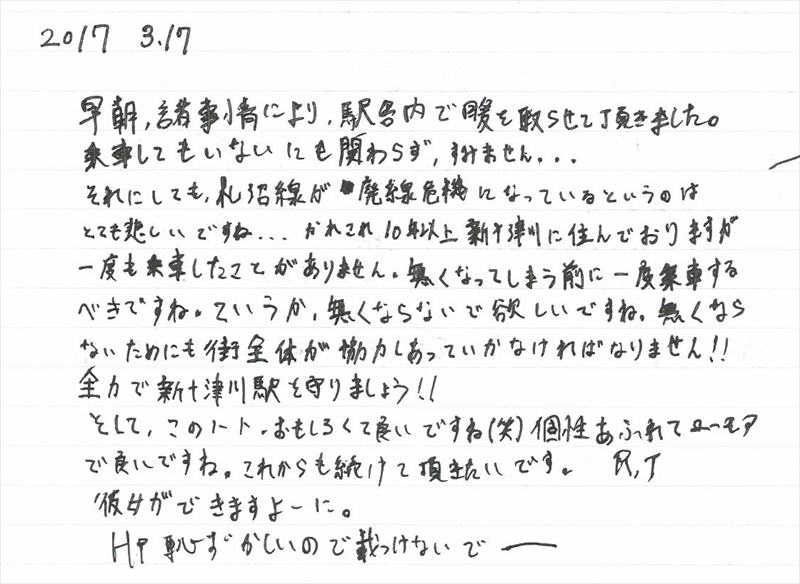 2017 3.17
早朝,諸事情により,駅舎内で暖を取らせて頂きました。
乗車してもいないにも関わらず,すみません...
それにしても,札沼線が廃線危機になっているというのは
とても悲しいですね... かれこれ10年以上新十津川に住んでおりますが
一度も乗車したことがありません。無くなってしまう前に一度乗車する
べきですね。ていうか,無くならないで欲しいですね。無くなら
ないためにも街全体が協力しあっていかなければなりません!!
全力で新十津川駅を守りましょう!!
そして,このノート.おもしろくて良いですね(笑)個性あふれてユーモア
で良いですね。これからも続けて頂きたいです。 R,J
彼女ができますよーに。
HP恥ずかしいので載っけないでー